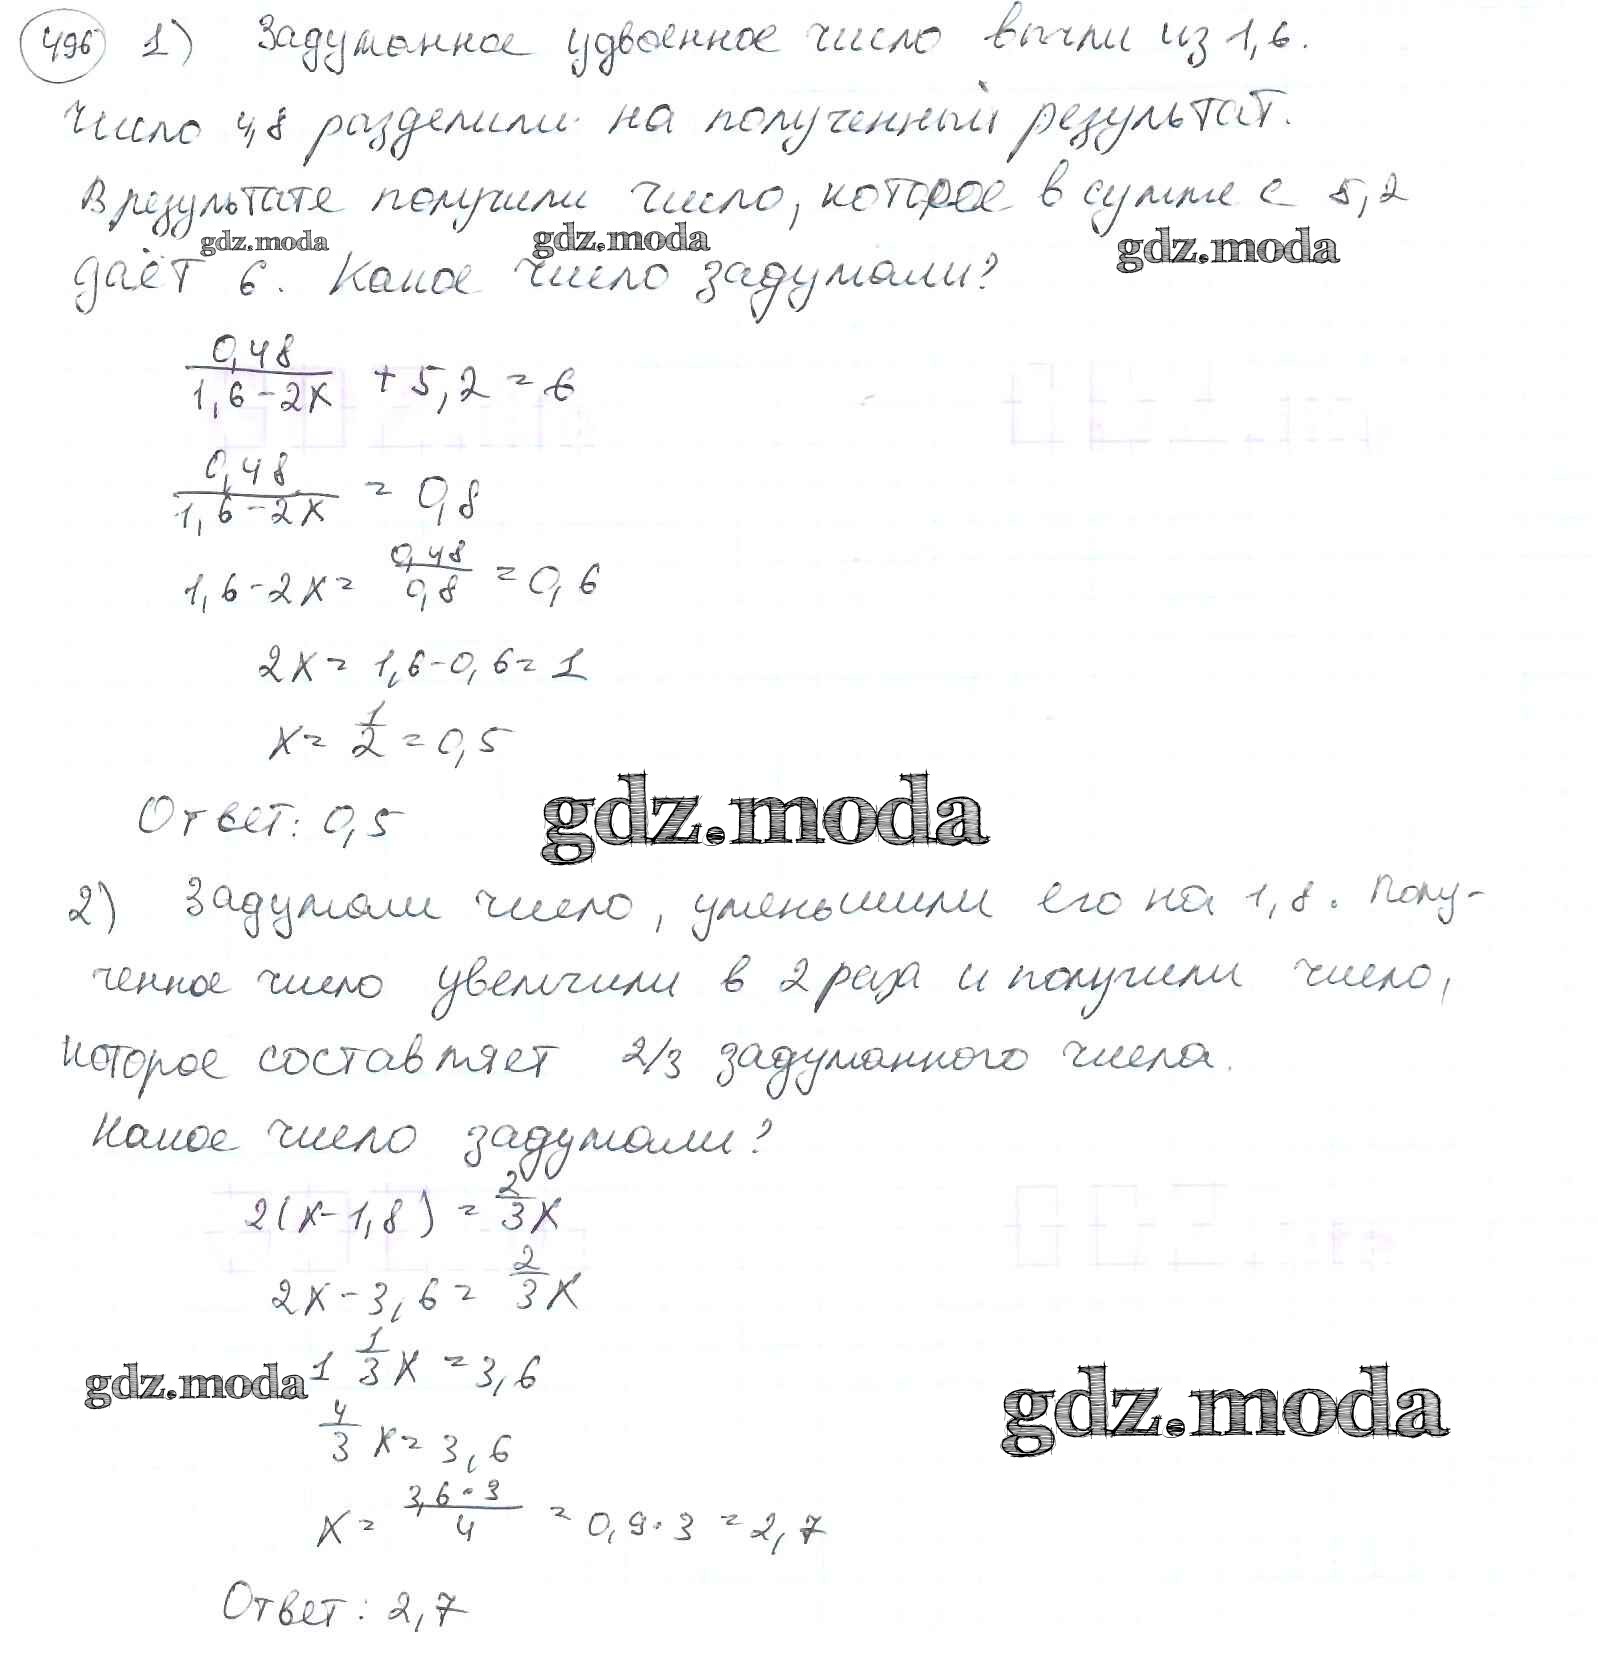 496 1) Задуманное удвоенное число вычли из 1,6.
Число 4,8 разделили на полученный результат.
В результате получили число, которое в сумме с 5,2
gdz.moda gdz.moda gdz.moda
даёт 6. Какое число задумали?
0,48/(1,6-2x) + 5,2 = 6
0,48/(1,6-2x) = 0,8
1,6-2x = 0,48/0,8 = 0,6
2x = 1,6-0,6 = 1
x = 1/2 = 0,5
Ответ: 0,5
gdz.moda
2) Задумали число, уменьшили его на 1,8. Полу-
ченное число увеличили в 2 раза и получили число,
которое составляет 2/3 задуманного числа.
Какое число задумали?
2(x-1,8) = 2/3 x
2x-3,6 = 2/3 x
1 1/3 x = 3,6
gdz.moda gdz.moda
4/3 x = 3,6
x = 3,6·3/4 = 0,9·3 = 2,7
Ответ: 2,7